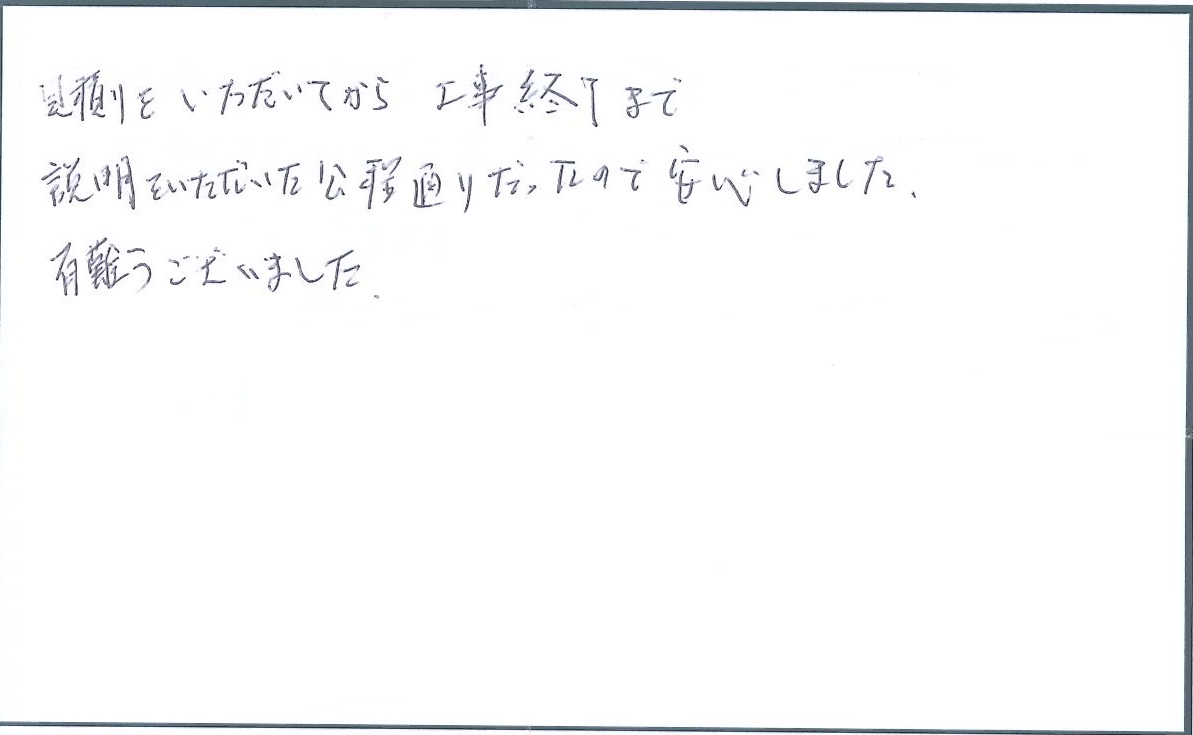 見積りをいただいてから 工事終了まで
説明をいただいた公程通りだったので安心しました.
有難うございました.